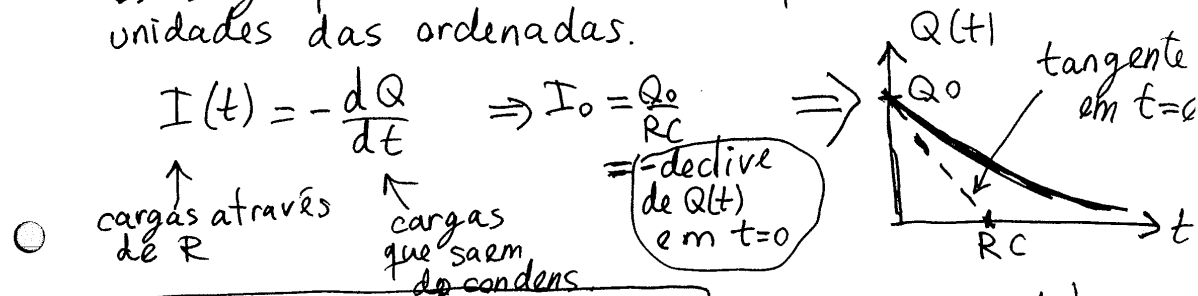 unidades das ordenadas.
I(t) = - dQ/dt ⇒ I₀ = Q₀/RC ⇒
= -declive
de Q(t)
em t=0
cargas através
de R
cargas
que saem
do condens.
Q(t)
Q₀
tangente
em t=0
RC
t